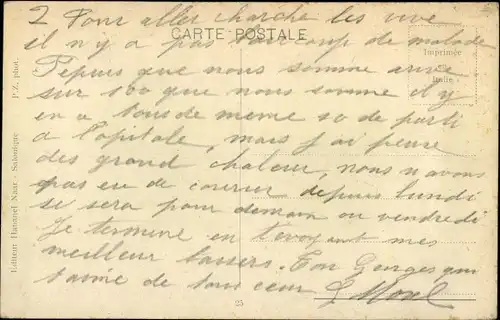 2 Pour aller charche les vive
CARTE POSTALE
il n y a pas baucoup de malade
Imprimée
en
Italie
Depuis que nous somme arive
sur 100 que nous somme il y
en a tous de meme 50 de parti
a l'opitale, mais j ai peure
des grand chaleur, nous n avons
pas eu de courier depuis lundi
si sera pour demain ou vendredi
Je termine en t'evoyant mes
meilleur baisers. Ton Georges qui
t'aime de tous coeur G Morel
25
Editeur Hananel Naar - Salonique P. Z. phot.